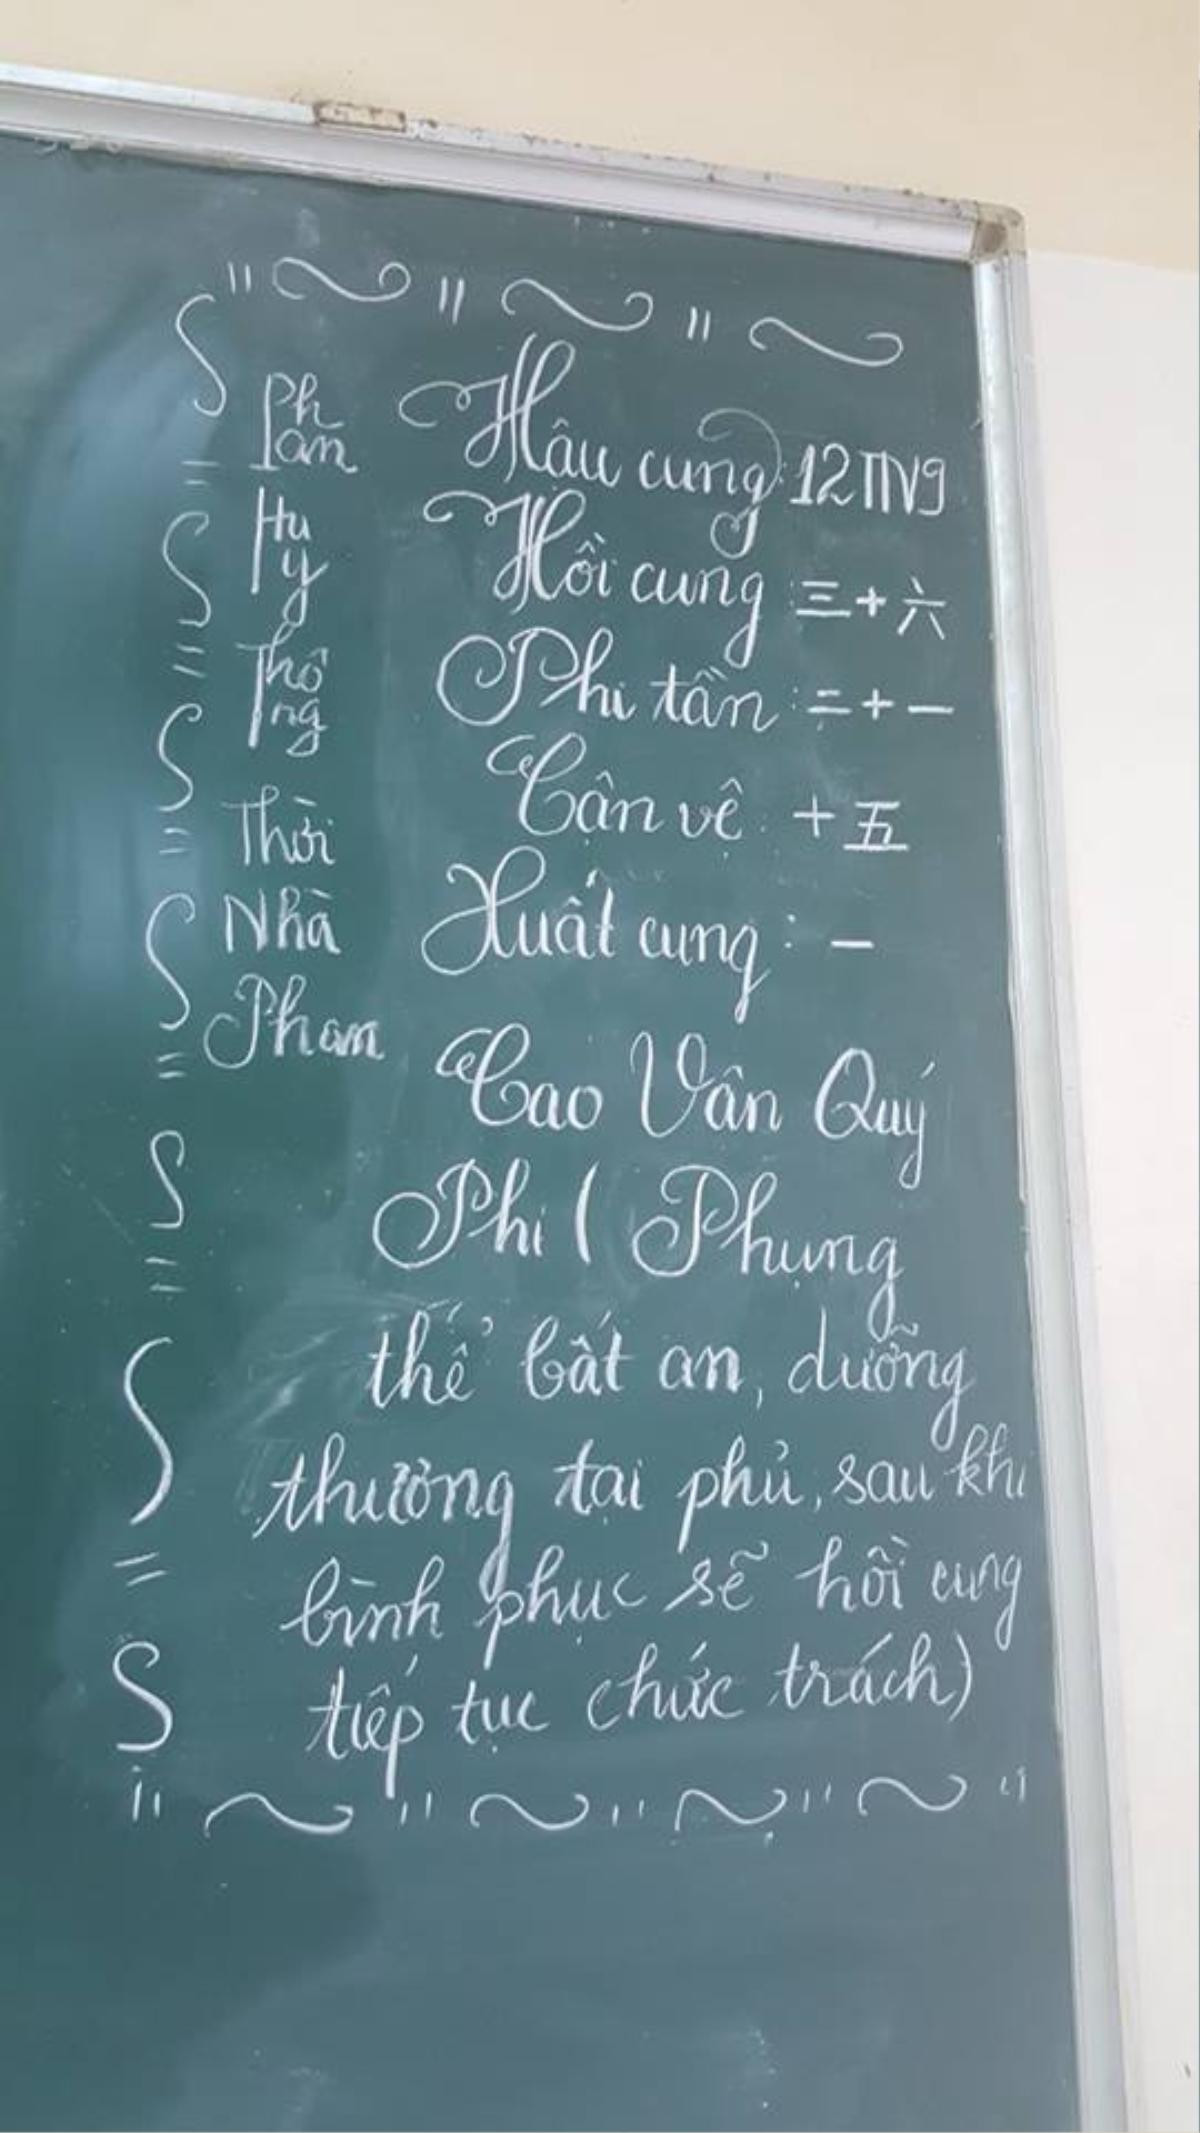 Phan
Huy
Thông
Thời
Nhà
Phan
Hậu cung: 12TNVG
Hồi cung: 三十六
Phi tần: 二十一
Cận vệ: 十五
Xuất cung: 一
Cao Vân Quý
Phi ( Phụng
thể bất an, dưỡng
thương tại phủ, sau khi
bình phục sẽ hồi cung
tiếp tục chức trách)